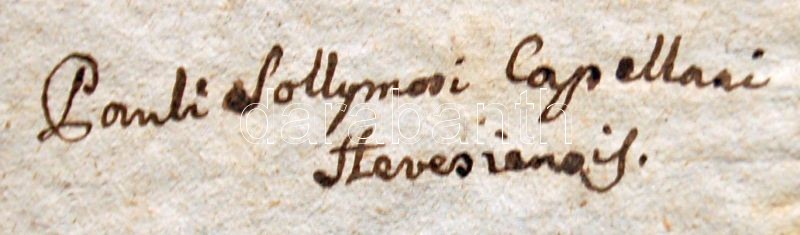 Pauli Sollymosi Capellani
Hevesiensis.
darabanth